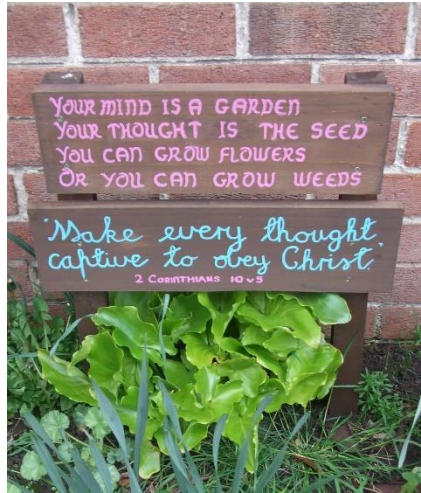 YOUR MIND IS A GARDEN
YOUR THOUGHT IS THE SEED
YOU CAN GROW FLOWERS
OR YOU CAN GROW WEEDS
"Make every thought
captive to obey Christ."
2 CORINTHIANS 10 v 5